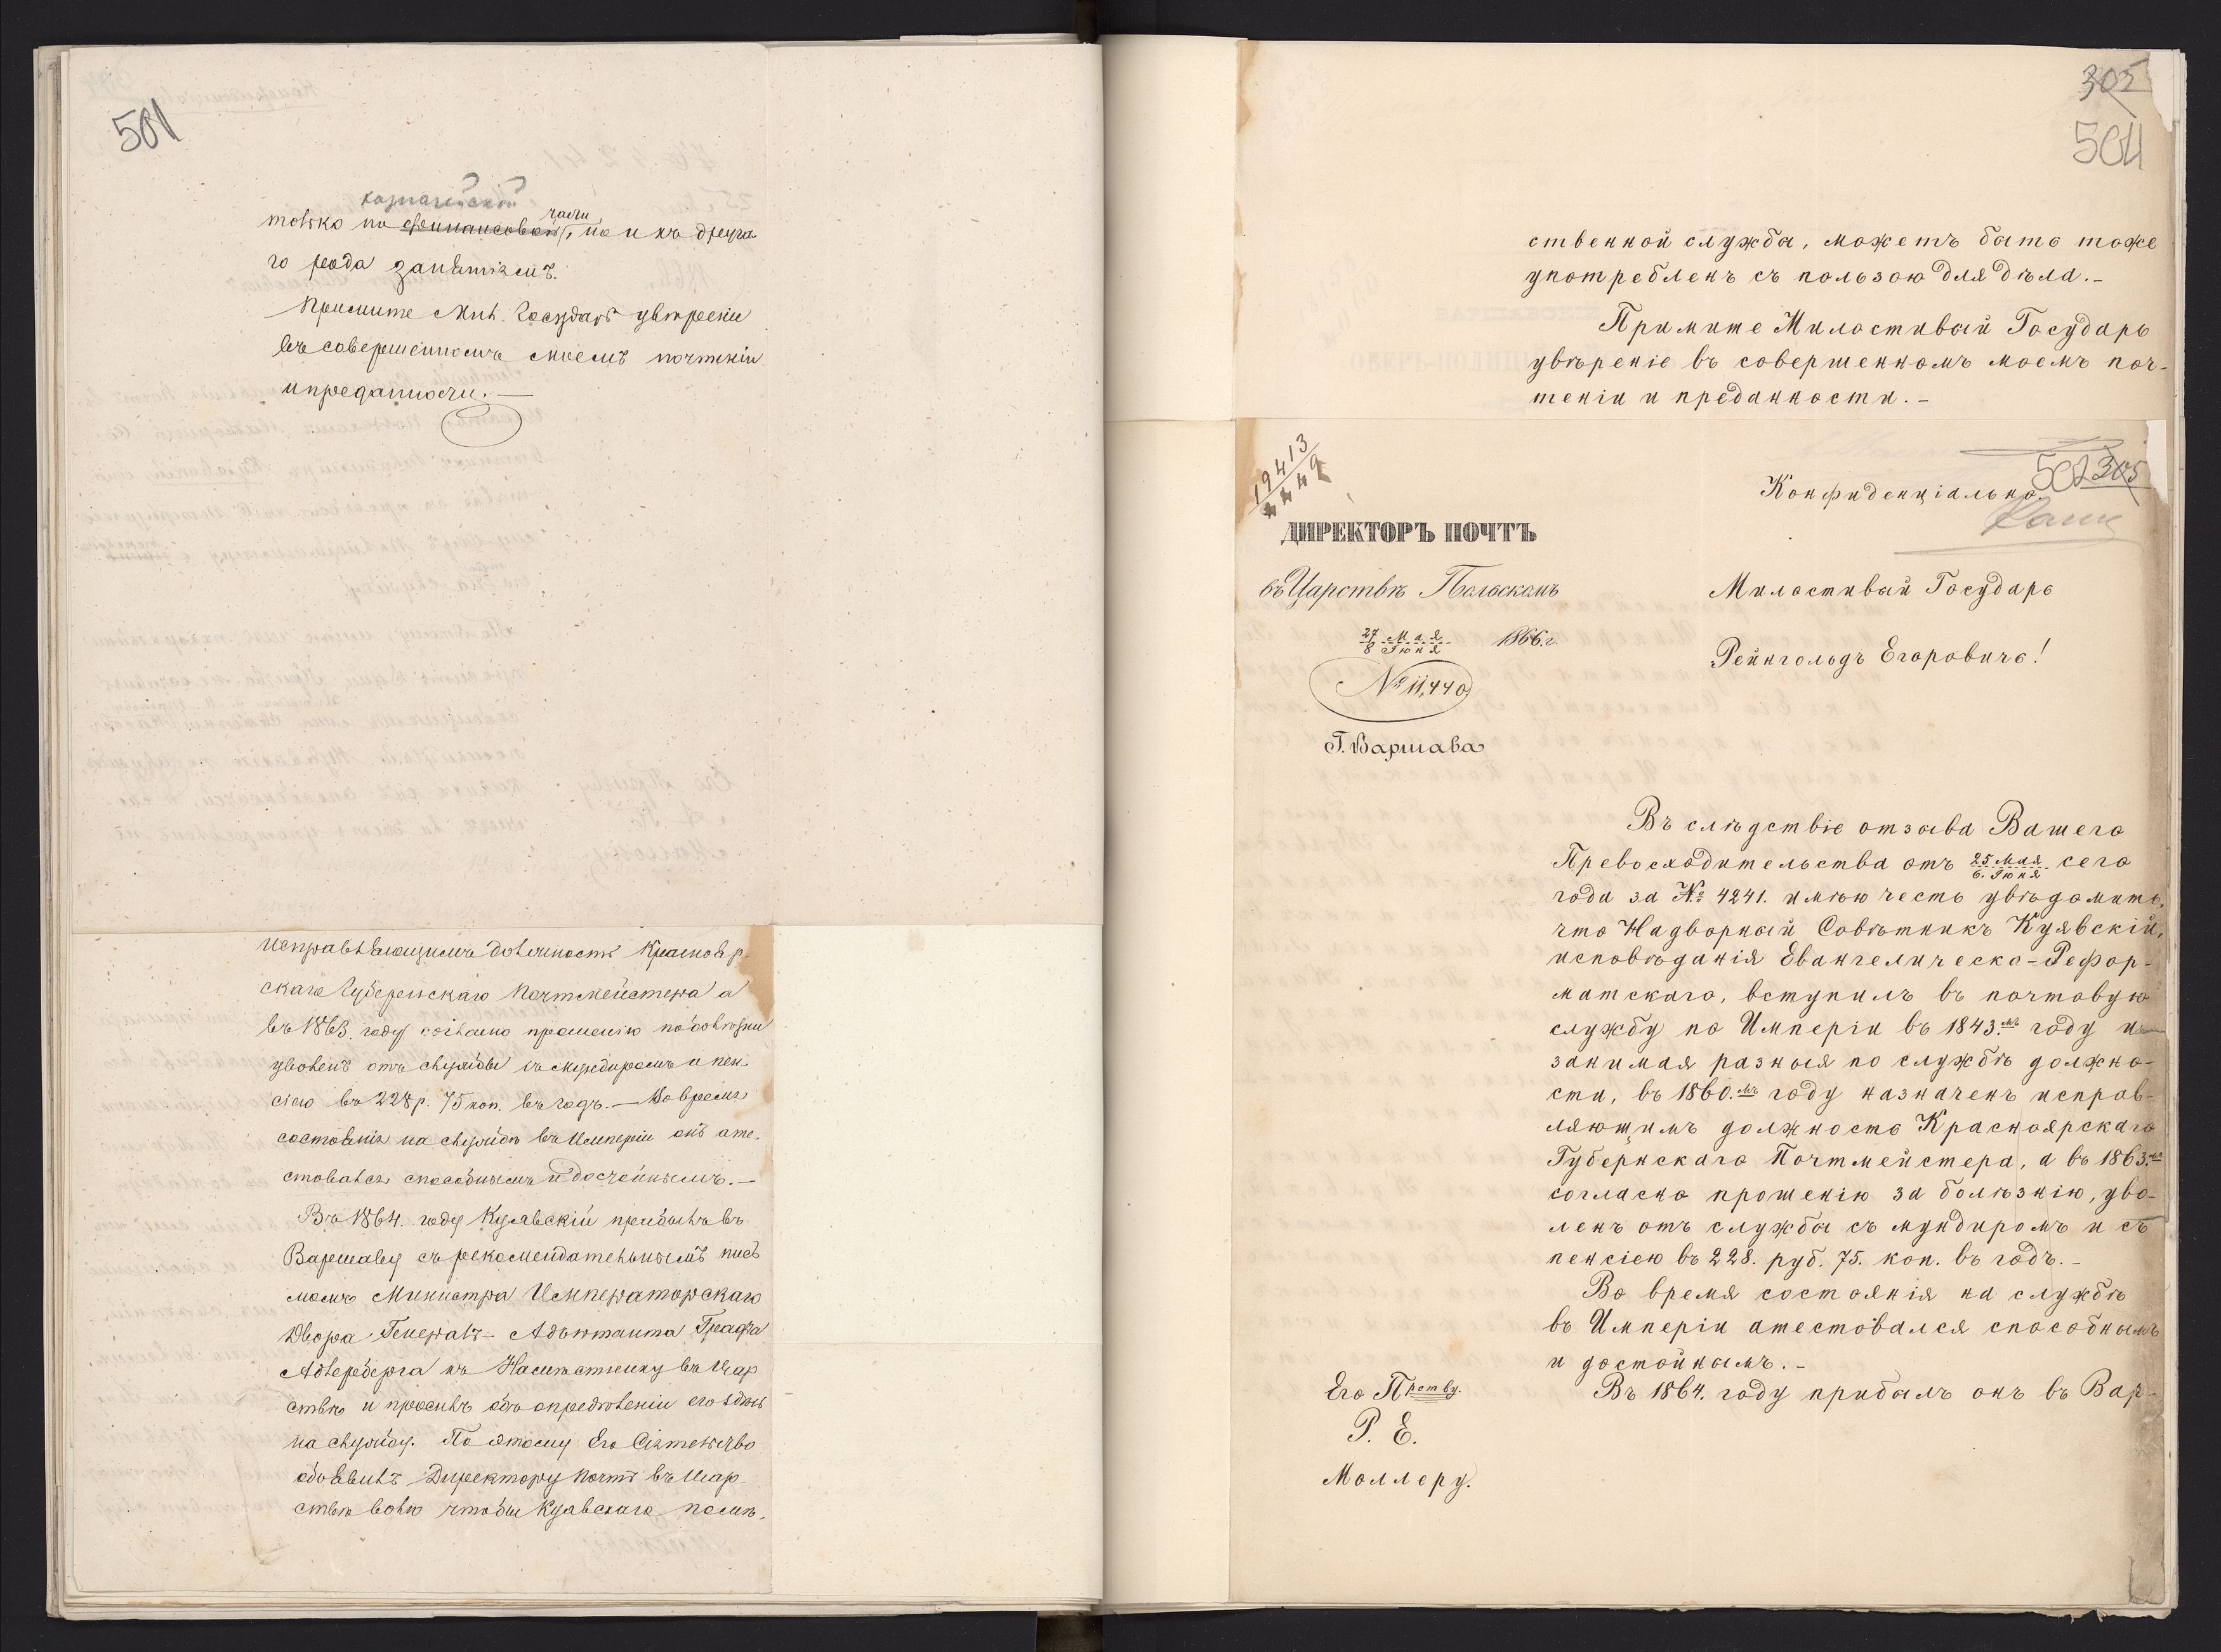 501
казначейской
части
только по финансовой, но и къ друга
го рода занятіямъ.
Примите Мил. Государь увѣреніе
въ совершенномъ моемъ почтеніи
и преданности.—
исправляющимъ должность Краснояр
скаго Губернскаго Почтмейстера а
въ 1863. году согласно прошенію по болѣзни
уволенъ отъ службы съ мундиромъ и пен-
сіею въ 228 р. 75 коп. въ годъ.— Во время
состоянія на службѣ въ Имперіи онъ ате-
стовался способнымъ и достойнымъ.—
Въ 1864. году Куявскій прибылъ въ
Варшаву съ рекомендательнымъ пись
момъ Министра Императорскаго
Двора Генералъ-Адъютанта Графа
Адлерберга къ Намѣстнику въ Цар
ствѣ и просилъ объ опредѣленіи его здѣсь
на службу. По этому Его Сіятельство
объявилъ Директору Почтъ въ Цар-
ствѣ волю чтобы Куявскаго помѣ-
305
504
ственной службы, можетъ быть тоже
употребленъ съ пользою для дѣла.—
Примите Милостивый Государь
увѣреніе въ совершенномъ моемъ поч-
теніи и преданности.—
19413
4449
Конфиденціально.
502 305
ДИРЕКТОРЪ ПОЧТЪ
въ Царствѣ Польскомъ
Милостивый Государь
27 Мая
8 Іюня 1866.г.
Рейнгольдъ Егоровичъ!
№ 11,440
Г. Варшава
Въ слѣдствіе отзыва Вашего
Превосходительства отъ 25 Мая
6. Іюня сего
года за № 4241. имѣю честь увѣдомить,
что Надворный Совѣтникъ Куявскій,
исповѣданія Евангелическо-Рефор-
матскаго, вступилъ въ почтовую
службу по Имперіи въ 1843.мъ году и
занимая разныя по службѣ должно-
сти, въ 1860.мъ году назначенъ исправ-
ляющимъ должность Красноярскаго
Губернскаго Почтмейстера, а въ 1863.мъ
согласно прошенію за болѣзнію, уво-
ленъ отъ службы съ мундиромъ и съ
пенсіею въ 228. руб. 75. коп. въ годъ.—
Во время состоянія на службѣ
въ Имперіи атестовался способнымъ
и достойнымъ.—
Въ 1864. году прибылъ онъ въ Вар-
Его Пр﻿ству.
Р. Е.
Моллеру.